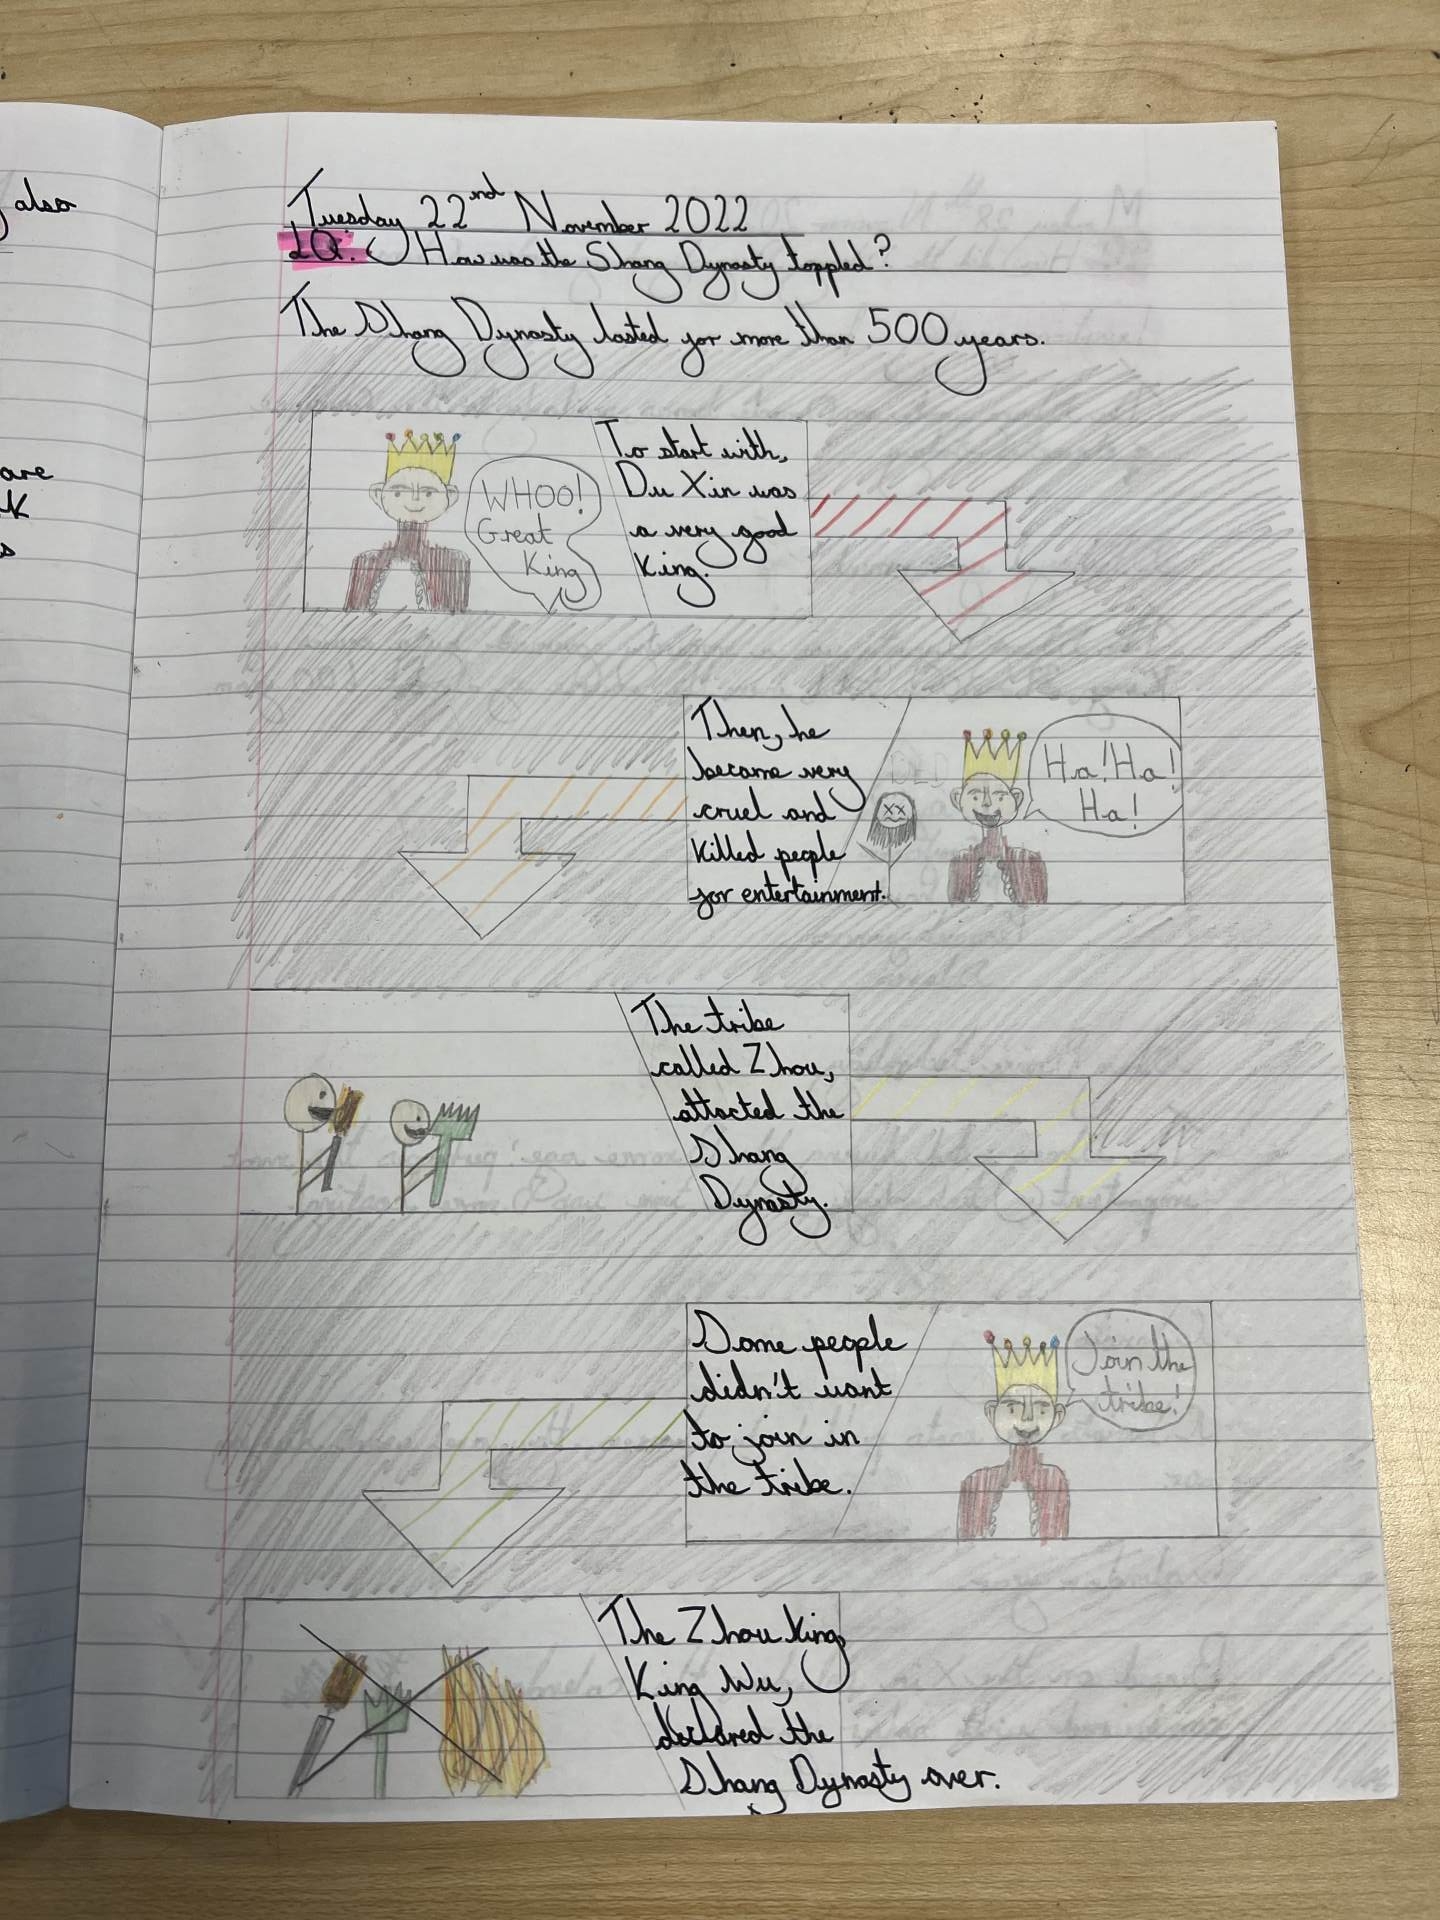 also
are
K
s
Tuesday 22nd November 2022
LQ: How was the Shang Dynasty toppled?
The Shang Dynasty lasted for more than 500 years.
WHOO!
Great
King
To start with,
Du Xin was
a very good
King.
Then, he
became very
cruel and
killed people
for entertainment.
DED
Ha! Ha!
Ha!
The tribe
called Zhou,
attacted the
Shang
Dynasty.
Some people
didn't want
to join in
the tribe.
Join the
tribe!
The Zhou King,
King Wu,
declared the
Shang Dynasty over.